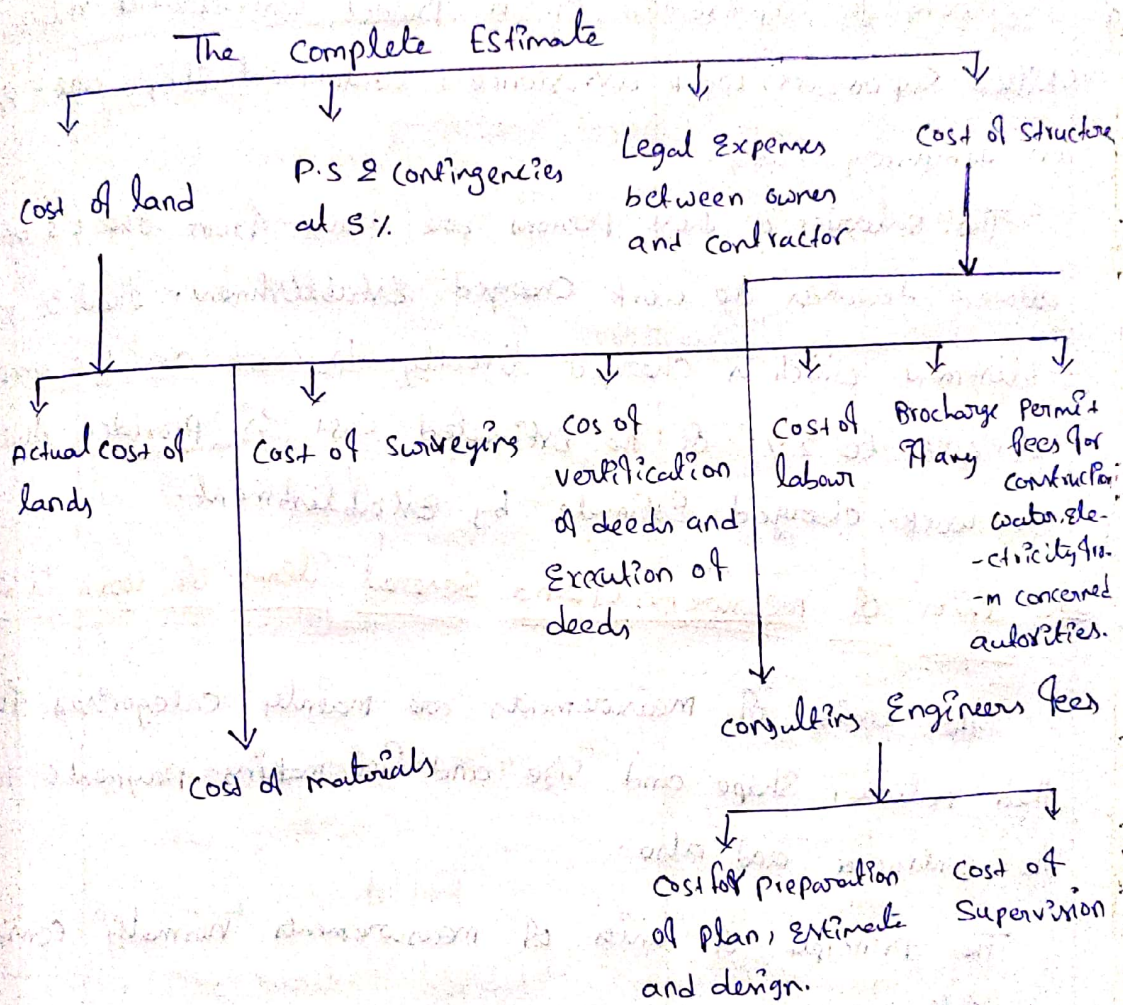 The Complete Estimate
Cost of land
P.S & Contingencies
at 5%
Legal Expenses
between owner
and contractor
Cost of Structure
Actual cost of
lands
Cost of Surveying
Cos of
verification
of deeds and
Execution of
deeds
Cost of
labour
Brocharge
If any
Permit
fees for
construction
water, ele-
-ctricity fro-
-m concerned
autorities.
Cost of materials
Consulting Engineers fees
Cost for preparation
of plan, Estimate
and design.
Cost of
Supervision